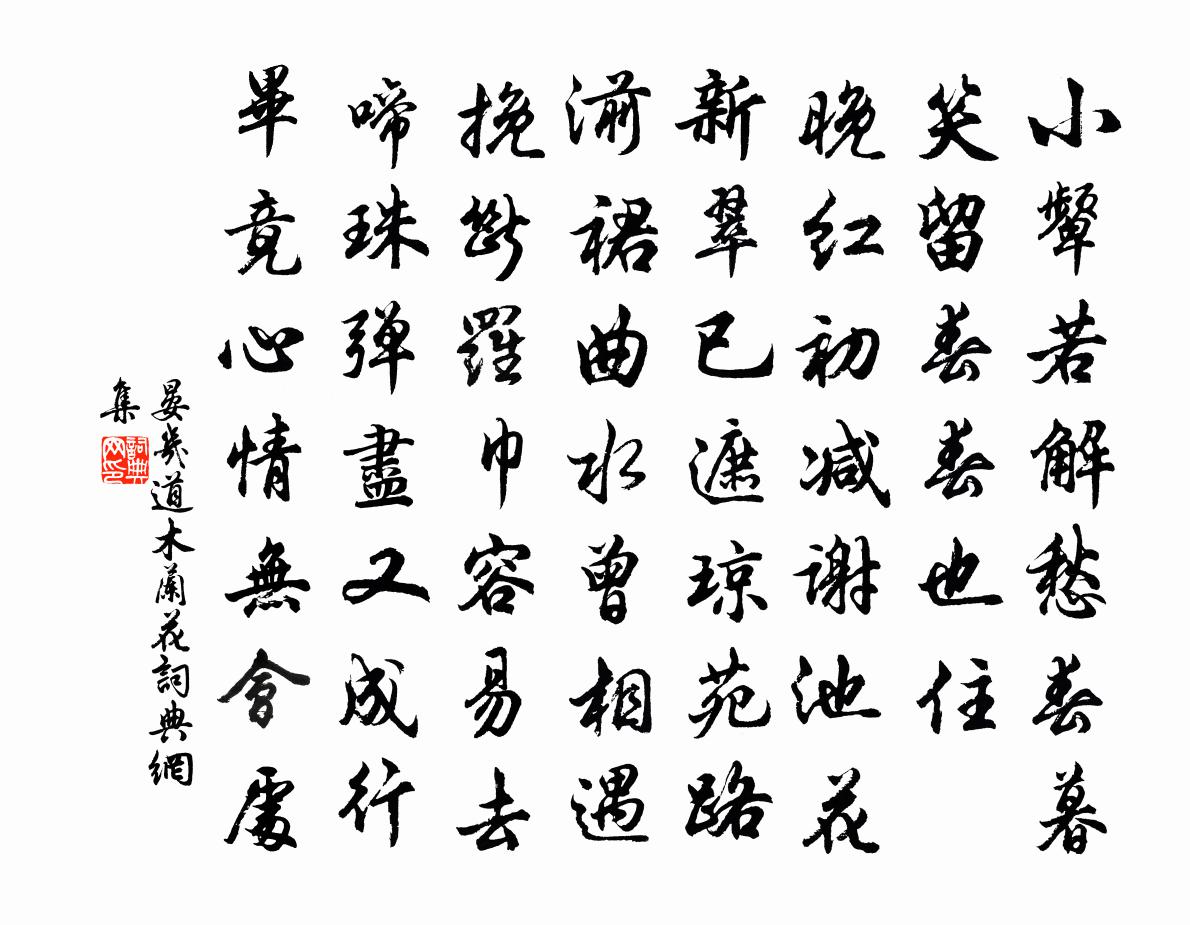 小顰若解愁春暮
笑留春春也住
晚紅初减謝池花
新翠已遮琼苑路
湔裙曲水曾相遇
挽斷羅巾容易去
啼珠彈盡又成行
畢竟心情無會處
晏幾道木蘭花詞典網
集
詞典
网印